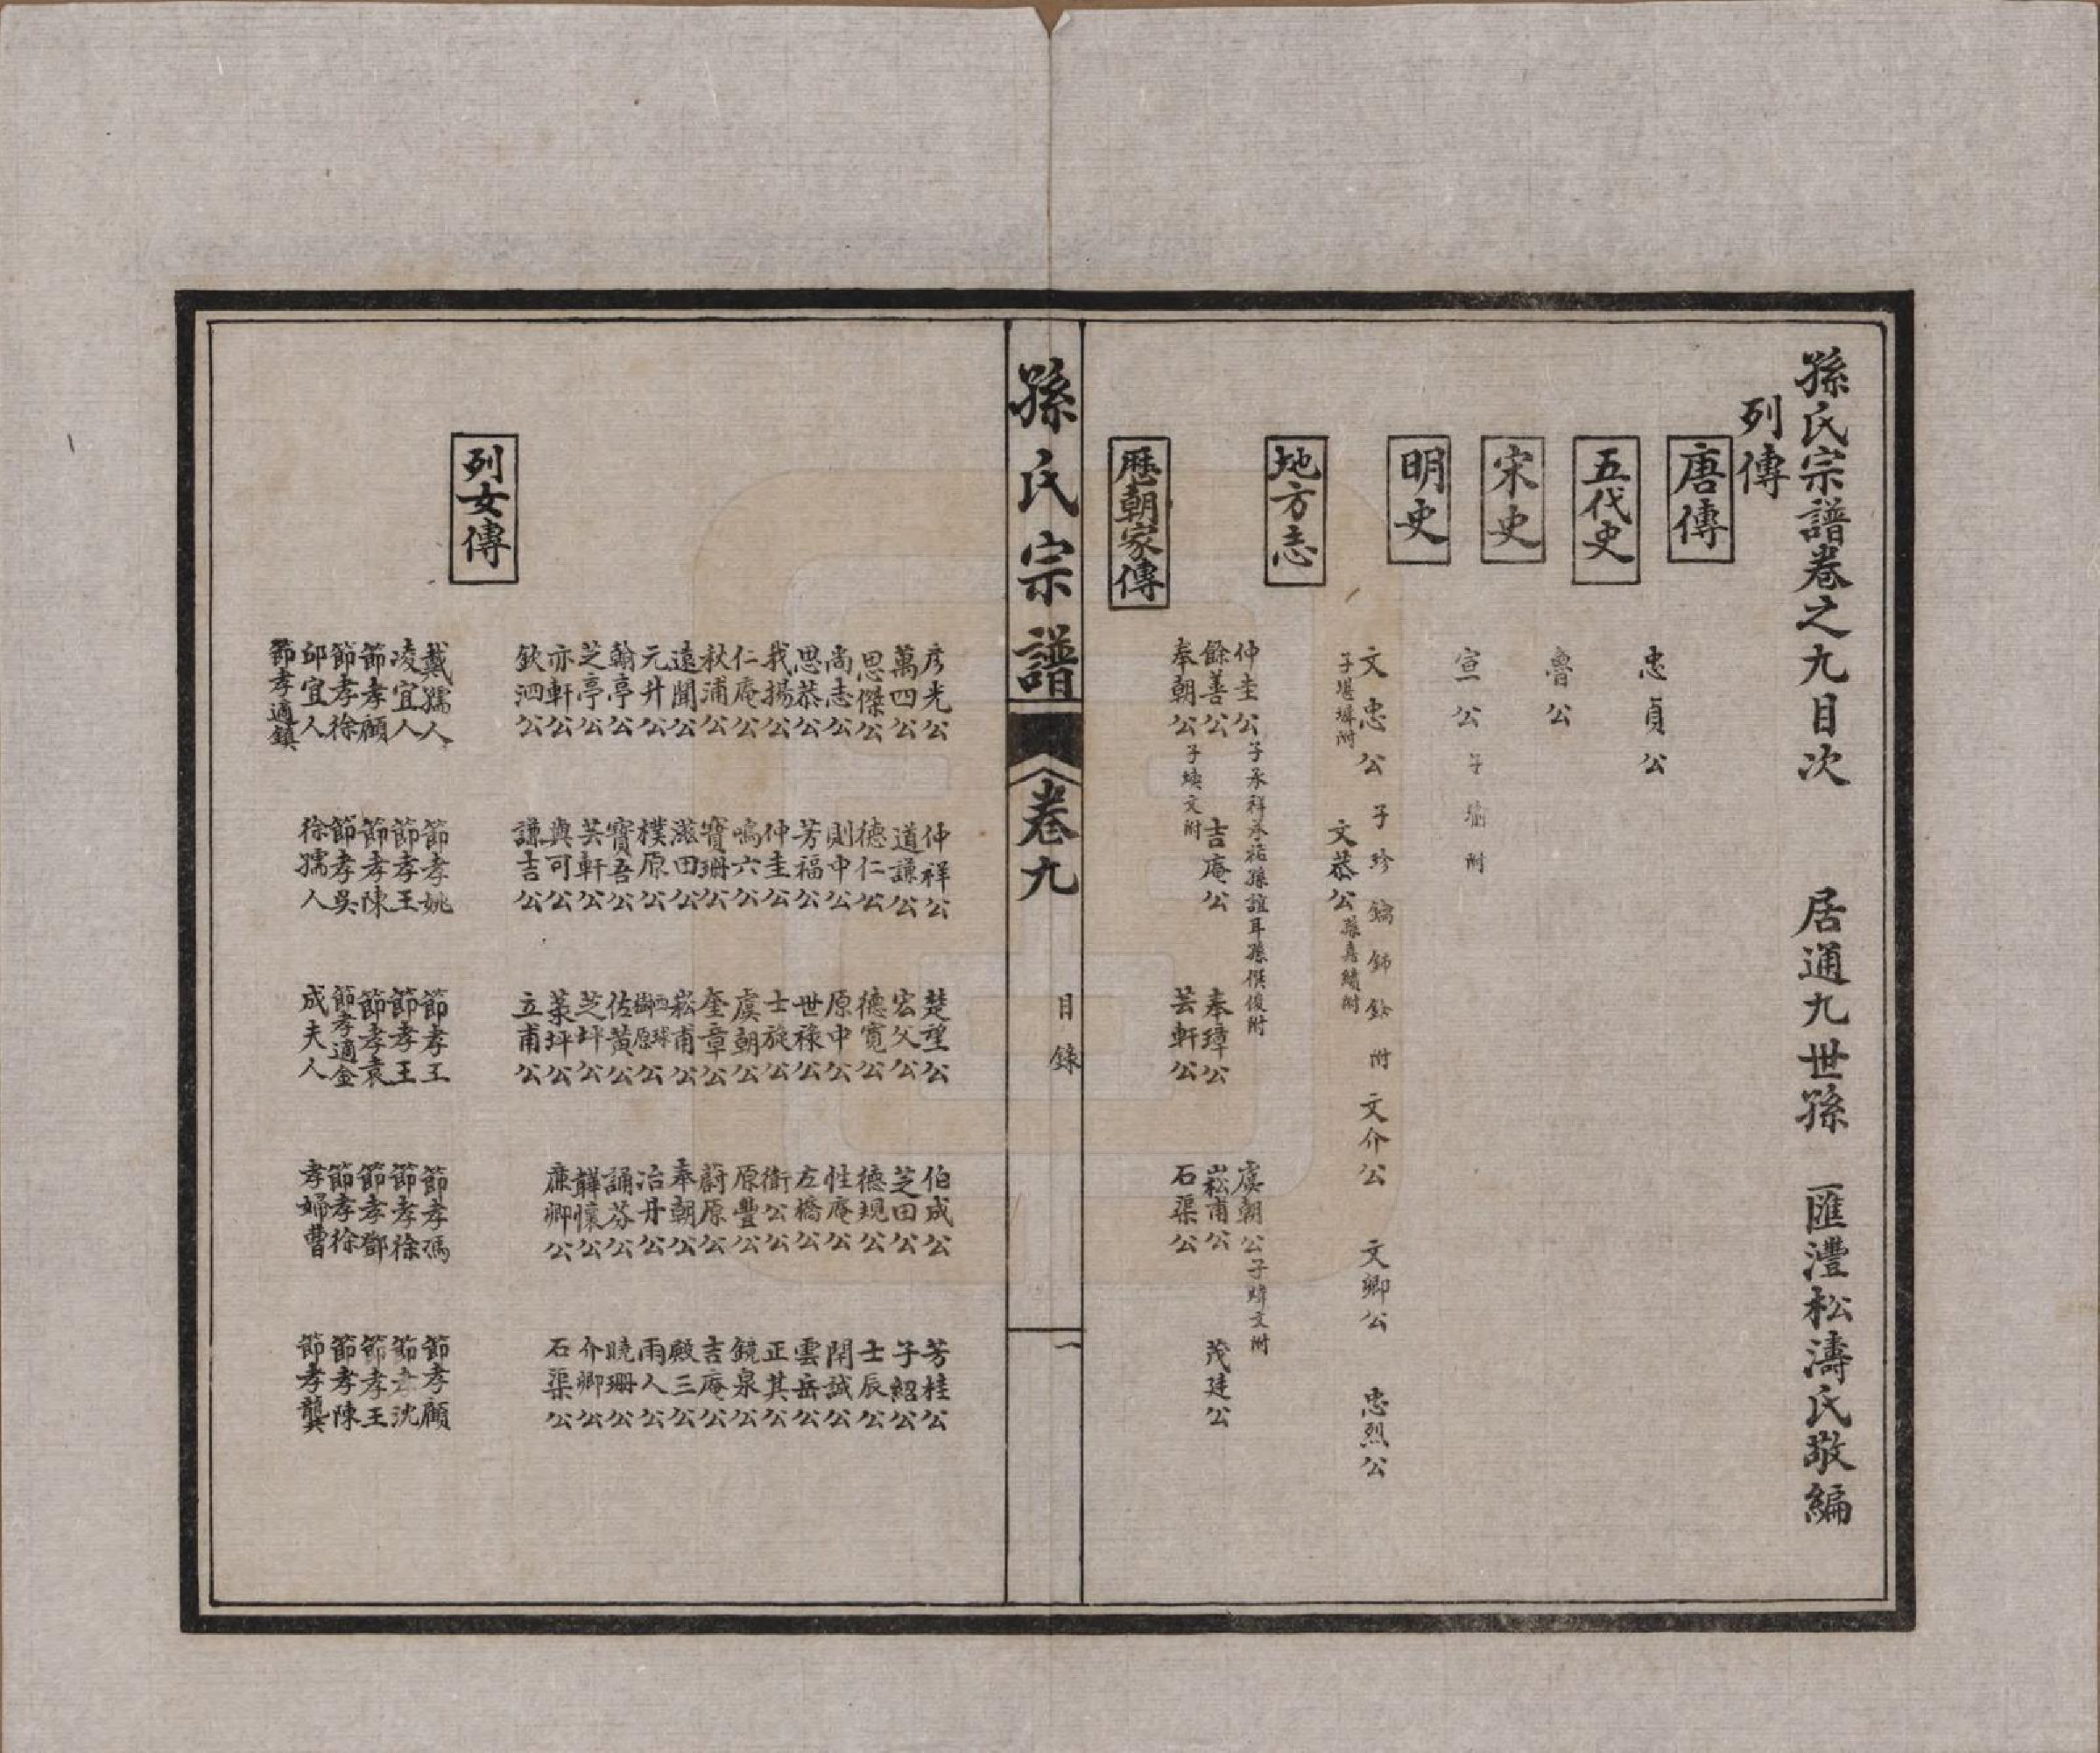 孫氏宗譜卷之九目次　居通九世孫　匯灃松濤氏敬編
列傳
唐傳
忠貞公
五代史
魯公
宋史
宣公 子瑜附
明史
文忠公 子珍鑰鈰銓附　文介公　文卿公　忠烈公
子堪墀附　文恭公 孫嘉績附
地方志
仲圭公 子承祥承祐孫誼耳孫僎俊附　虞朝公 子煒文附
餘善公　吉庵公　奉璋公　崧甫公　茂廷公
奉朝公 子煐文附　芸軒公　石渠公
歷朝家傳
孫氏宗譜　卷九　目錄　一
彥光公　仲祥公　楚望公　伯成公　芳桂公
萬四公　道謙公　宏父公　芝田公　子紹公
思傑公　德仁公　德寬公　德規公　士辰公
尚志公　則中公　原中公　性庵公　閑誠公
思恭公　芳福公　世祿公　左橋公　雲岳公
我揚公　仲圭公　士旋公　衛公公　正其公
仁庵公　鳴六公　虞朝公　原豐公　鏡泉公
秋浦公　寶珊公　奎章公　蔚原公　吉庵公
遠聞公　滋田公　崧甫公　奉朝公　殿三公
元升公　樸原公　西球樹原公　冶丹公　雨人公
翰亭公　寶吾公　佐黃公　誦芬公　曉珊公
芝亭公　芸軒公　芝坪公　韡懷公　介卿公
亦軒公　與可公　菉坪公　廉卿公　石渠公
欽泗公　謙吉公　立甫公
列女傳
戴孺人　節孝姚　節孝王　節孝馮　節孝顧
凌宜人　節孝王　節孝王　節孝徐　節孝沈
節孝顧　節孝陳　節孝袁　節孝鄧　節孝王
節孝徐　節孝吳　節孝適金　節孝徐　節孝陳
邱宜人　徐孺人　成夫人　孝婦曹　節孝龔
節孝適鎮